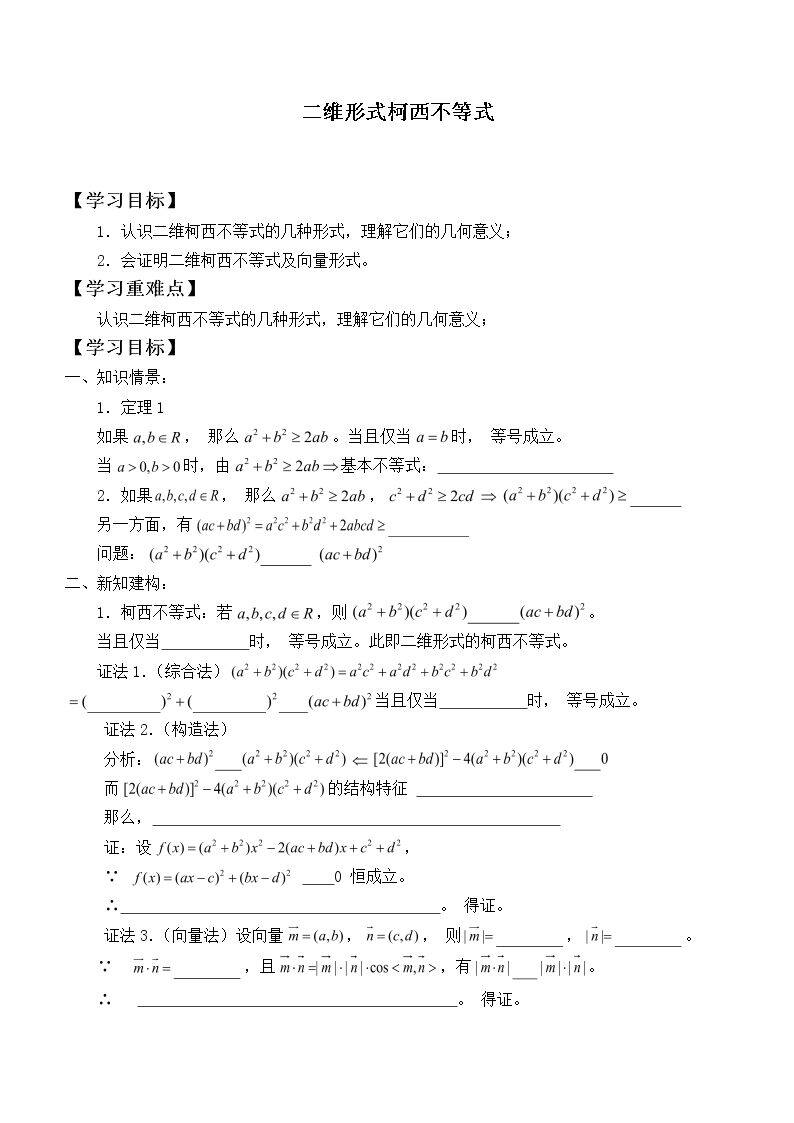 二维形式柯西不等式
【学习目标】
1. 认识二维柯西不等式的几种形式，理解它们的几何意义；
2. 会证明二维柯西不等式及向量形式。
【学习重难点】
认识二维柯西不等式的几种形式，理解它们的几何意义；
【学习目标】
一、知识情景：
1. 定理1
如果 a,b∈R， 那么 a²+b²≥2ab。当且仅当 a=b时， 等号成立。
当 a>0,b>0时，由 a²+b²≥2ab⇒基本不等式：____________________
2. 如果a,b,c,d∈R， 那么 a²+b²≥2ab，c²+d²≥2cd ⇒ (a²+b²)(c²+d²)≥______
另一方面，有 (ac+bd)²=a²c²+b²d²+2abcd≥__________
问题：(a²+b²)(c²+d²)______ (ac+bd)²
二、新知建构：
1. 柯西不等式：若 a,b,c,d∈R，则 (a²+b²)(c²+d²)______(ac+bd)²。
当且仅当__________时， 等号成立。此即二维形式的柯西不等式。
证法1.（综合法）(a²+b²)(c²+d²)=a²c²+a²d²+b²c²+b²d²
=(________)²+(________)²___(ac+bd)²当且仅当__________时， 等号成立。
证法2.（构造法）
分析：(ac+bd)²___(a²+b²)(c²+d²) ⇐ [2(ac+bd)]²−4(a²+b²)(c²+d²)___0
而 [2(ac+bd)]²−4(a²+b²)(c²+d²)的结构特征 ____________________
那么，______________________________________________
证：设 f(x)=(a²+b²)x²−2(ac+bd)x+c²+d²，
∵ f(x)=(ax−c)²+(bx−d)² ____0 恒成立。
∴____________________________________。 得证。
证法3.（向量法）设向量 m⃗=(a,b)，n⃗=(c,d)， 则|m⃗|=________，|n⃗|=________。
∵ m⃗·n⃗=________，且 m⃗·n⃗=|m⃗|·|n⃗|·cos<m⃗,n⃗>，有 |m⃗·n⃗|___|m⃗|·|n⃗|。
∴ ____________________________________。 得证。